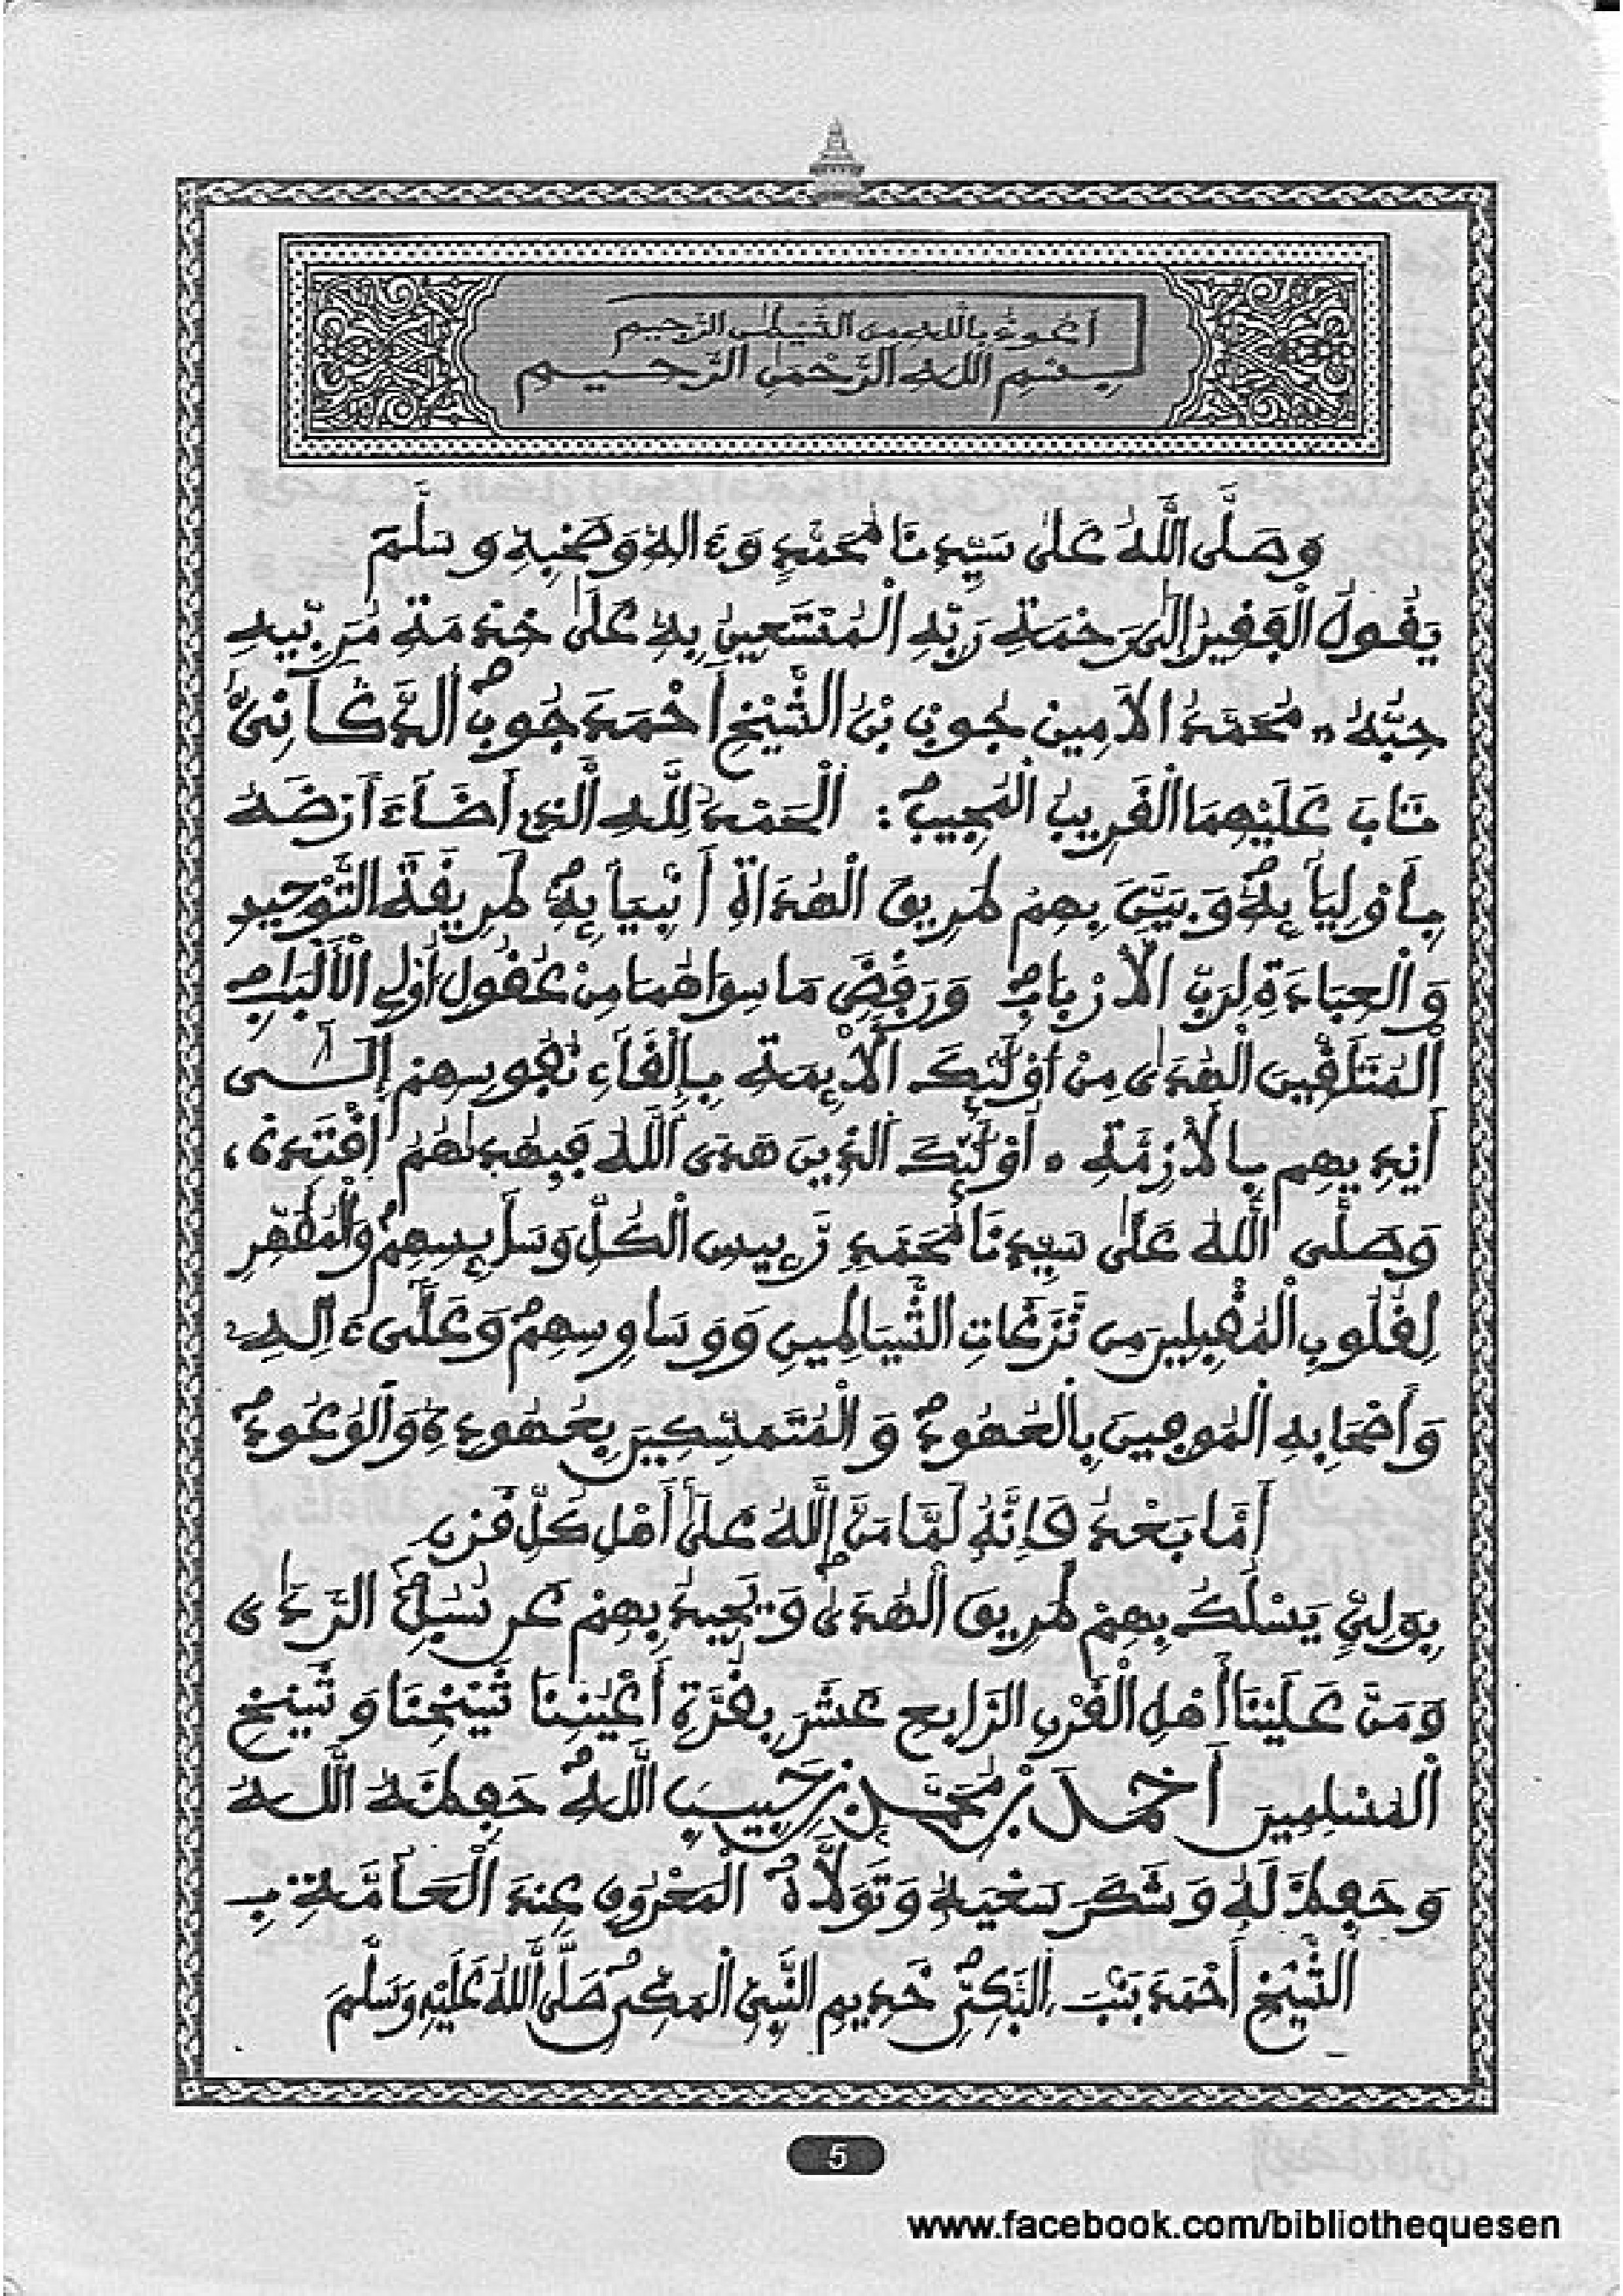 أعوذ بالله من الشيطٰن الرجيم
بسم الله الرحمٰن الرحيم
وصلى الله على سيدنا محمد وءاله وصحبه وسلم
يقول الفقير إلى رحمة ربه المستعين به على خدمة مربيه
حبه محمد الامين جوب بن الشيخ أحمد جوب الدكاني
تاب عليهما القريب المجيب : الحمد لله الذي أضاء أرضه
بأوليائه وبين بهم طريق الهداة أنبيائه طريقة التوحيد
والعبادة لرب الأرباب ورفض ما سواهما من عقول أولي الألباب
المتلقين الهدى من أولئك الأئمة بإلقاء نفوسهم إلى
أيديهم بالأزمة ، أولئك الذين هدى الله فبهدىهم اقتده ،
وصلى الله على سيدنا محمد رئيس الكل وسائسهم والمطهر
لقلوب المقبلين من نزغات الشياطين ووساوسهم وعلى ءاله
وأصحابه الموفين بالعهود والمتمسكين بعهوده والوعود
أما بعد فإنه لما من الله على أهل كل قرن
بولي يسلك بهم طريق الهدى ويحيد بهم عن سبل الردى
ومن علينا أهل القرن الرابع عشر بقرة أعيننا شيخنا وشيخ
المسلمين أحمد بن محمد بن حبيب الله حفظه الله
وحفظ له وشكر سعيه وتولاه المعروف عند العامة ب
الشيخ أحمد بنب البكي خديم النبي المكي صلى الله عليه وسلم
5
www.facebook.com/bibliothequesen